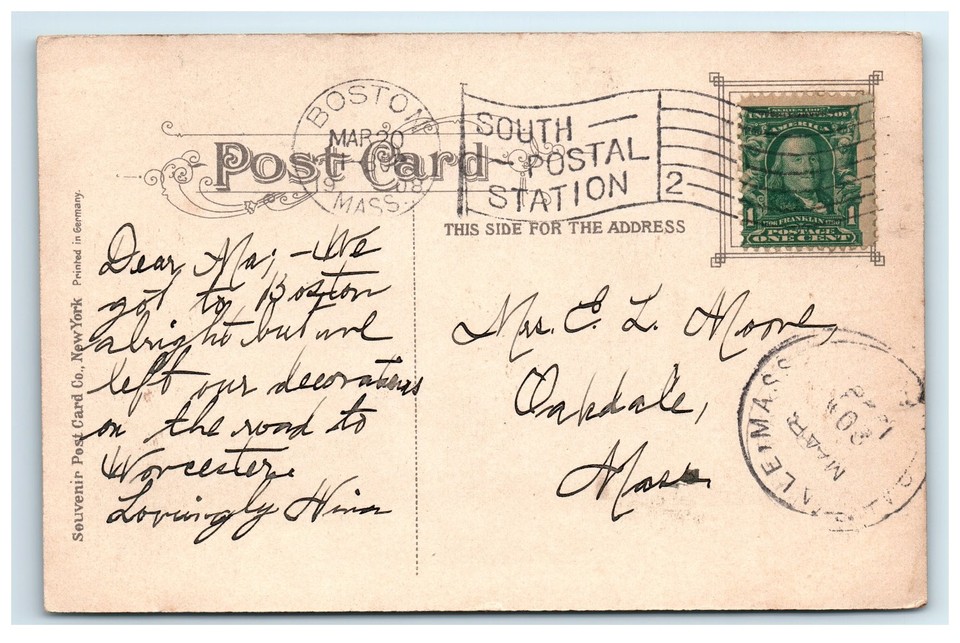 BOSTON
MAR 20
1908
MASS.
SOUTH
POSTAL
STATION
2
Post Card
THIS SIDE FOR THE ADDRESS
SERIES 1902
UNITED STATES OF
AMERICA
1
FRANKLIN
1
POSTAGE
ONE CENT
Souvenir Post Card Co., New York Printed in Germany.
Dear Ma; - We
got to Boston
alright but we
left our decorations
on the road to
Worcester.
Lovingly Nina
Mrs. E. L. Moore,
Oakdale,
Mass.
OAKDALE MASS
MAR